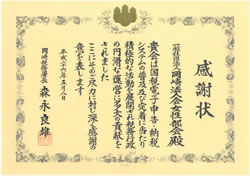 感謝状
一般社団法人岡崎法人会女性部会殿
貴会は国税電子申告・納税
システムの普及及び定着に当たり
積極的な活動を展開され税務行政
の円滑な運営に多大な貢献を
されました
ここにその御尽力に対し深く感謝の
意を表します
平成二十六年五月八日
岡崎税務署長
森永良雄